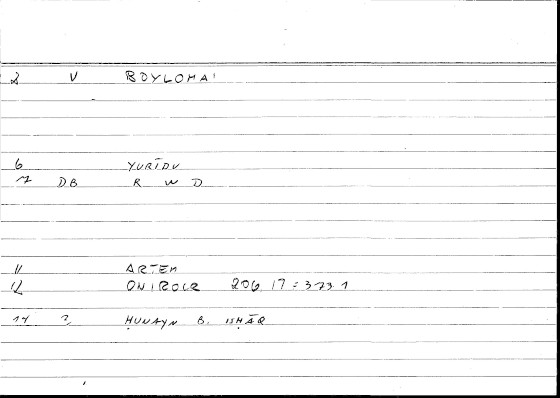 2 V BOYLOMAI
6 YURĪDU
7 DB R W D
11 ARTEM
12 ONIROCR 206, 17 = 373 1
14 2 ḤUNAYN B. ISḤĀQ